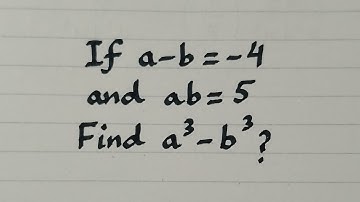 If a-b=-4
and ab=5
Find a³-b³?